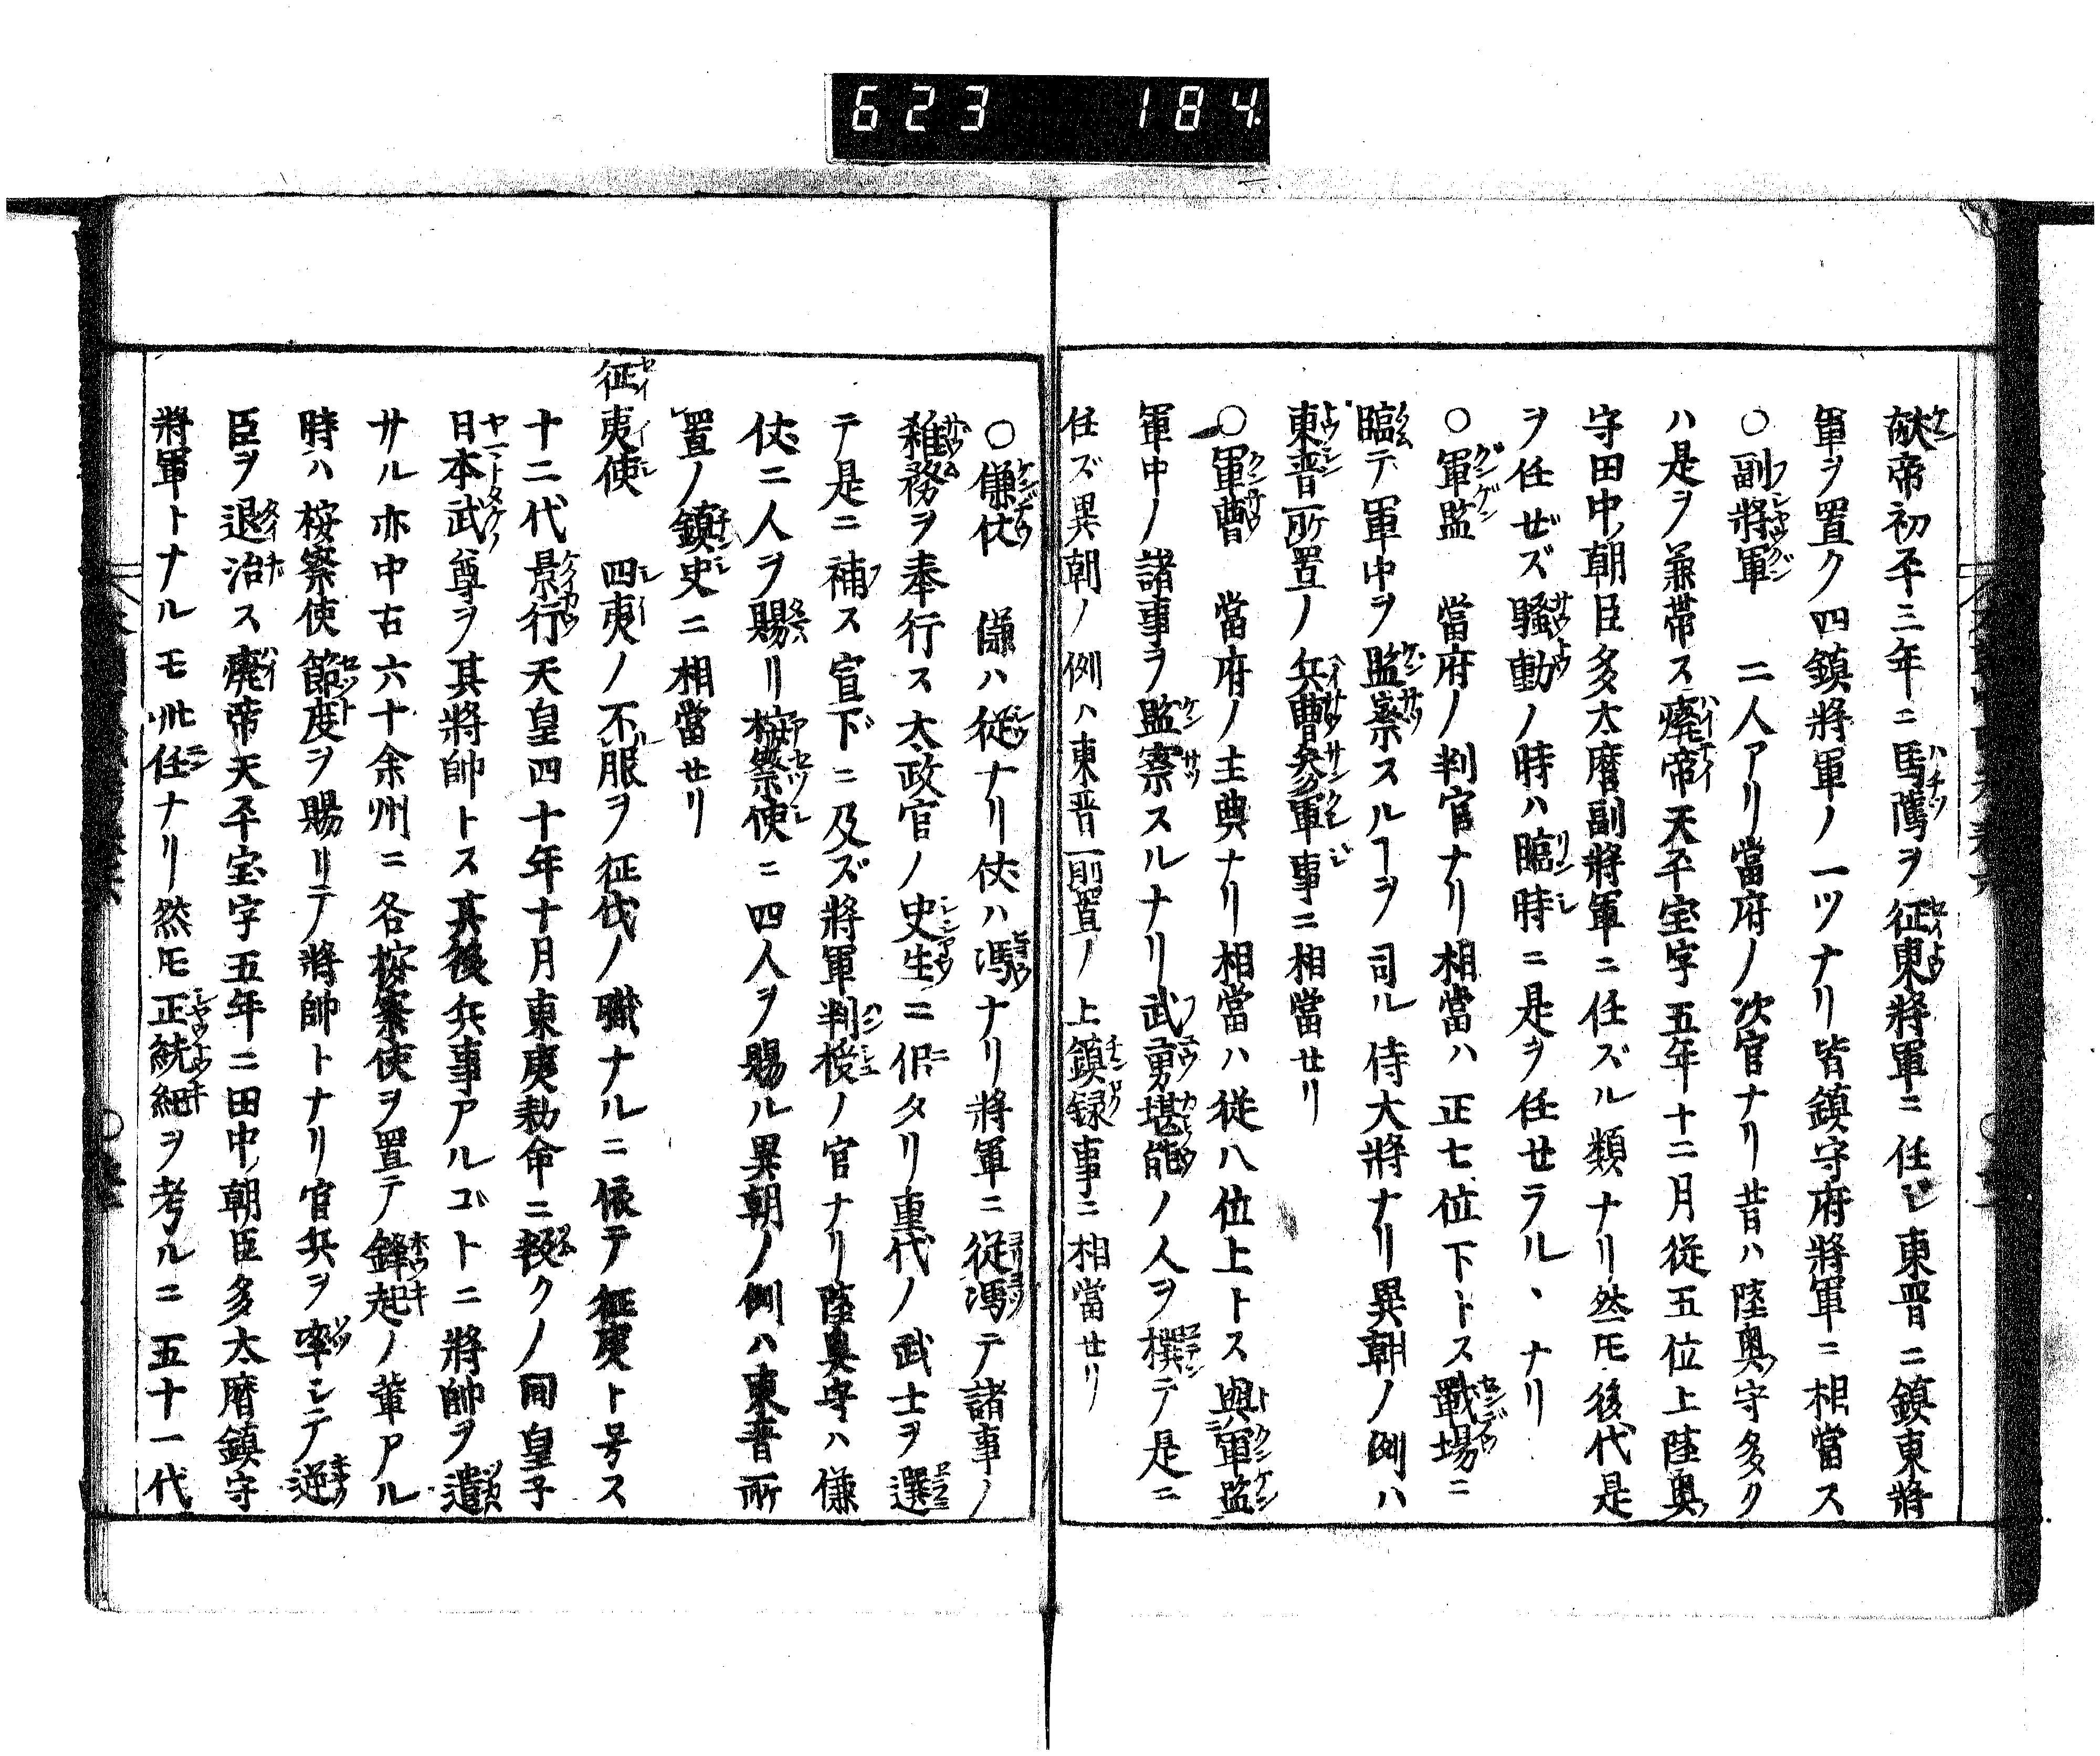 623 184
献帝初平三年ニ馬騰ヲ征東將軍ニ任じ東晋ニ鎮東將
軍ヲ置ク四鎮將軍ノ一ツナリ皆鎮守府將軍ニ相當ス
○副將軍 二人アリ當府ノ次官ナリ昔ハ陸奥守多ク
ハ是ヲ兼帯ス廃帝天平宝字五年十二月従五位上陸奥
守田中朝臣多太麿副將軍ニ任ズル類ナリ然ㇳモ後代是
ヲ任ぜズ騒動ノ時ハ臨時ニ是ヲ任せラルヽナリ
○軍監 當府ノ判官ナリ相當ハ正七位下トス戰場ニ
臨テ軍中ヲ監察スルヿヲ司ル侍大將ナリ異朝ノ例ハ
東晋所置ノ兵曹参軍事ニ相當せリ
○軍曹 當府ノ主典ナリ相當ハ従八位上トス與軍監
軍中ノ諸事ヲ監察スルナリ武勇堪能ノ人ヲ撰テ是ニ
任ズ異朝ノ例ハ東晋則置ノ上鎮録事ニ相當せリ
○傔仗 傔ハ従ナリ仗ハ馮ナリ將軍ニ従馮テ諸事ノ
雑務ヲ奉行ス太政官ノ史生ニ似タリ重代ノ武士ヲ選
テ是ニ補ス宣下ニ及ズ將軍判授ノ官ナリ陸奥守ハ傔
仗二人ヲ賜リ按察使ニ四人ヲ賜ル異朝ノ例ハ東晋所
置ノ鎮史ニ相當せリ
征夷使 四夷ノ不服ヲ征伐ノ職ナルニ依テ征夷ト号ス
十二代景行天皇四十年十月東夷勅命ニ叛クノ間皇子
日本武尊ヲ其將帥トス其後兵事アルゴトニ將帥ヲ遣
サル亦中古六十余州ニ各按察使ヲ置テ鋒起ノ輩アル
時ハ按察使節度ヲ賜リテ將帥トナリ官兵ヲ率シテ逆
臣ヲ退治ス廃帝天平宝字五年ニ田中朝臣多太麿鎮守
將軍トナルモ此任ナリ然ㇳモ正統紀ヲ考ルニ五十一代